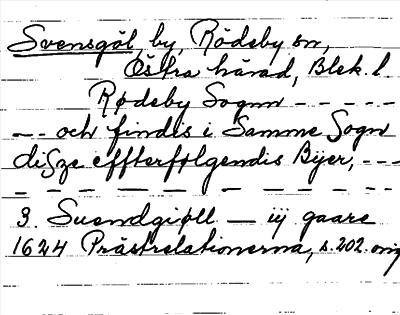 Svensgöl, by, Rödeby sn,
Östra härad, Blek. l.
Rødeby Sognn - - - - -
- - och findis i Samme Sogn
disze effterfølgendis Bÿer, - - -
- - - - - - - - - - -
3. Suendgiøll — iij gaare
1624 Prästrelationerna, s. 202. orig